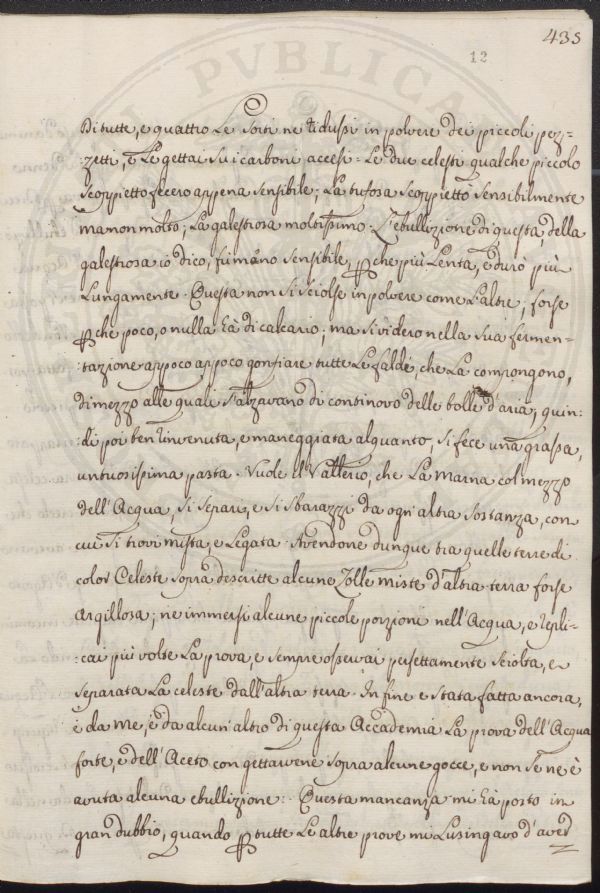 435
12
PVBLICA
Di tutte, e quattro Le Sorti ne ridussi in polvere dei piccoli pez=
:zetti, e Le gettai su i carboni accesi. Le due celesti qualche piccolo
scoppietto fecero appena sensibile; La tufosa scoppiettò sensibilmente
ma non molto; La galestrosa moltissimo. L'ebullizione di questa, della
galestrosa io dico, fù meno sensibile, p che più Lenta, e durò più
Lungamente. Questa non si sciolse in polvere come L'altre; forse
p che poco, o nulla hà di calcario; ma si videro nella sua fermen-
:tazione appoco appoco gonfiare tutte Le falde, che La compongono,
di mezzo alle quali s'alzavano di continovo delle bolle d'aria, quin:
:di poi ben rinvenuta, e maneggiata alquanto, si fece una grassa,
untuosissima pasta. Vuole il Vallerio, che La Marna col mezzo
dell'Acqua, si separi, e si sbarazzi da ogn'altra sostanza, con
cui si trovi mista, e Legata. Avendone dunque tra quelle terre di
color Celeste sopra descritte alcune Zolle miste d'altra terra forse
argillosa; ne immersi alcune piccole porzioni nell'Acqua, e repli-
:cai più volte La prova, e sempre osservai perfettamente sciolta, e
separata La celeste dall'altra terra. In fine è stata fatta ancora,
e da Me, e da alcun'altro di questa Accademia La prova dell'Acqua
forte, e dell'Aceto con gettarvene sopra alcune gocce, e non se ne è
avuta alcuna ebullizione. Questa mancanza mi hà posto in
gran dubbio, quando p tutte Le altre prove mi Lusingavo d'aver